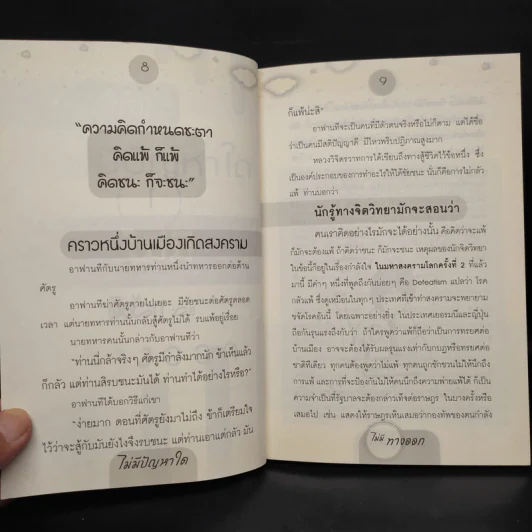 8
"ความคิดกำหนดชะตา
คิดแพ้ ก็แพ้
คิดชนะ ก็จะชนะ"
คราวหนึ่งบ้านเมืองเกิดสงคราม
อาฟานทีกับนายทหารท่านหนึ่งนำทหารออกต่อต้าน
ศัตรู
อาฟานทีฆ่าศัตรูตายไปเยอะ มีชัยชนะต่อศัตรูตลอด
เวลา แต่นายทหารท่านนั้นกลับสู้ศัตรูไม่ได้ รบแพ้อยู่เรื่อย
นายทหารคนนั้นกล่าวกับอาฟานทีว่า
"ท่านนี่กล้าจริงๆ ศัตรูมีกำลังมากนัก ข้าเห็นแล้ว
ก็กลัว แต่ท่านสิรบชนะมันได้ ท่านทำได้อย่างไรหรือ?"
อาฟานทีได้บอกวิธีแก่เขา
"ง่ายมาก ตอนที่ศัตรูยังมาไม่ถึง ข้าก็เตรียมใจ
ไว้ว่าจะสู้กับมันยังไงจึงรบชนะ แต่ท่านเอาแต่กลัว มัน
ไม่มีปัญหาใด
9
ก็แพ้น่ะสิ"
อาฟานทีจะเป็นคนที่มีตัวตนจริงหรือไม่ก็ตาม แต่ได้ชื่อ
ว่าเป็นคนมีสติปัญญาดี มีไหวพริบปฏิภาณสูงมาก
หลวงวิจิตรวาทการได้เขียนถึงทางสู้ชีวิตไว้ข้อหนึ่ง ซึ่ง
เป็นองค์ประกอบของการทำอะไรให้ได้ชัยชนะ นั่นก็คือการไม่กลัว
แพ้ ท่านบอกว่า
นักรู้ทางจิตวิทยามักจะสอนว่า
คนเราคิดอย่างไรมักจะได้อย่างนั้น คือคิดว่าจะแพ้
ก็มักจะต้องแพ้ ถ้าคิดว่าชนะ ก็มักจะชนะ เหตุผลของนักจิตวิทยา
ในข้อนี้ก็อยู่ในเรื่องกำลังใจ ในมหาสงครามโลกครั้งที่ 2 ที่แล้ว
มา นี้ มีคำๆ หนึ่งที่พูดถึงกันบ่อยๆ คือ Defeatism แปลว่า โรค
กลัวแพ้ ซึ่งดูเหมือนในทุกๆ ประเทศที่เข้าทำสงครามจะพยายาม
ขจัดโรคอันนี้ โดยเฉพาะอย่างยิ่ง ในประเทศเยอรมนีและญี่ปุ่น
ถือกันรุนแรงถึงกับว่า ถ้าใครพูดว่าแพ้ก็ถือว่าเป็นการทรยศต่อ
บ้านเมือง อาจจะต้องได้รับผลรุนแรงเท่ากับกบฏหรือทรยศต่อ
ชาติทีเดียว ทุกคนต้องพูดว่าไม่แพ้ ทุกคนถูกชักชวนไม่ให้นึกถึง
การแพ้ และการที่จะป้องกันไม่ให้คนนึกถึงความพ่ายแพ้ได้ ก็เป็น
ความจำเป็นที่รัฐบาลจะต้องกล่าวเท็จต่อราษฎร ในบางครั้งหรือ
เสมอไป เช่น แสดงให้ราษฎรเห็นเสมอว่ากองทัพของตนกำลัง
ไม่มีทางออก